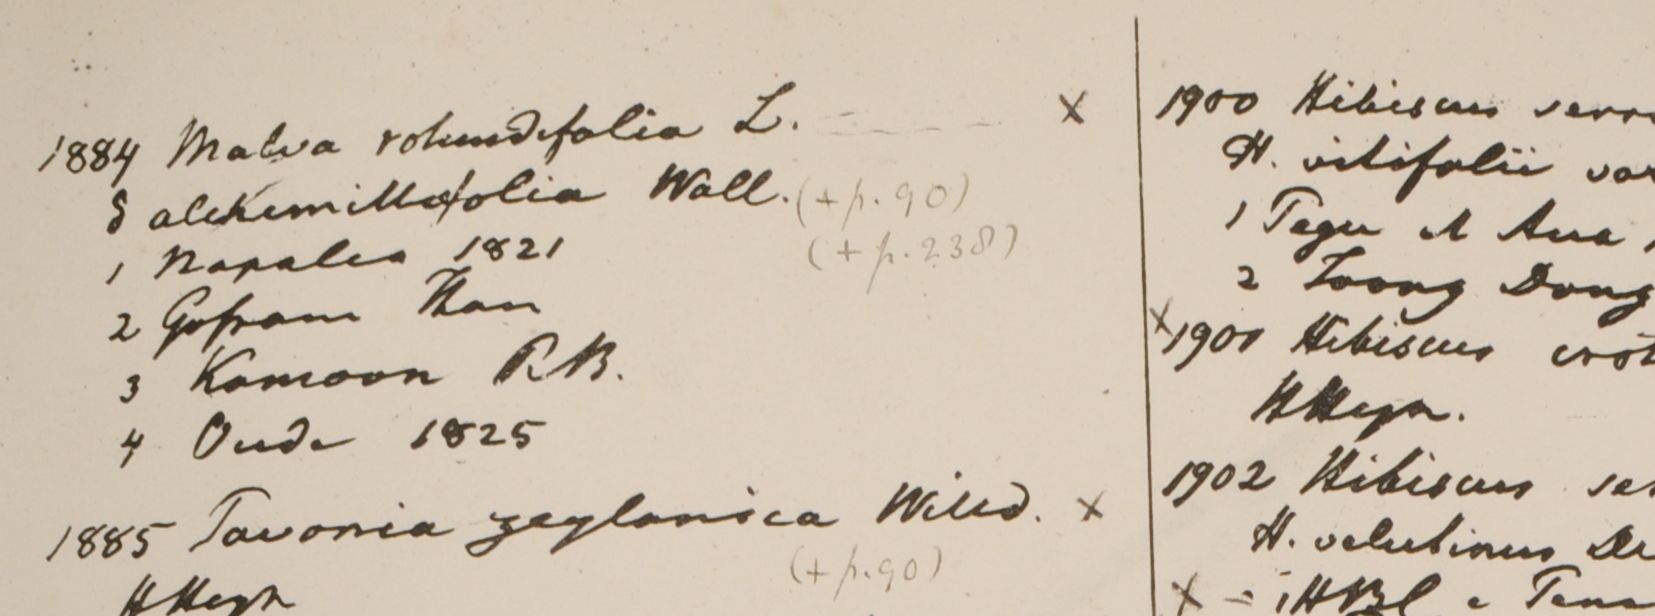 1884 Malva rotundifolia L. x
δ alchemillaefolia Wall. (+ p. 90)
(+ p. 238)
1 Napalia 1821
2 Gossam Than
3 Kamoon R.B.
4 Oude 1825
1885 Pavonia zeylanica Willd. x
(+ p. 90)
HHeyn
1900 Hibiscus
H. vitifolii var
1 Tegu Ava
2 Toong Dong
x 1901 Hibiscus
HHeyn.
1902 Hibiscus
H. velutinus
x = 1 HBC e